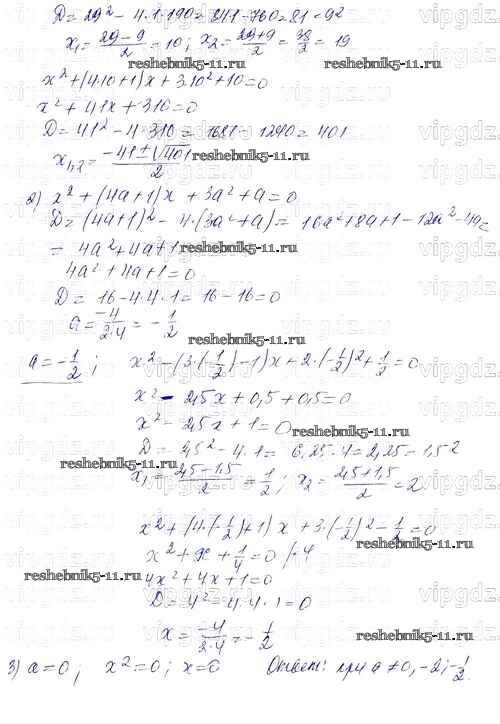 D = 29² - 4·1·190 = 841 - 760 = 81 = 9²
x₁ = (29-9)/2 = 10; x₂ = (29+9)/2 = 38/2 = 19
reshebnik5-11.ru reshebnik5-11.ru
x² + (4·10+1)x + 3·10² + 10 = 0
x² + 41x + 310 = 0
D = 41² - 4·310 = 1681 - 1240 = 401
x₁,₂ = (-41±√401)/2
reshebnik5-11.ru
2) x² + (4a+1)x + 3a² + a = 0
D = (4a+1)² - 4·(3a²+a) = 16a²+8a+1-12a²-4a =
= 4a² + 4a + 1
reshebnik5-11.ru
4a² + 4a + 1 = 0
D = 16 - 4·4·1 = 16 - 16 = 0
a = -4/2·4 = -1/2
reshebnik5-11.ru
a = -1/2; x² - (3·(-1/2)-1)x + 2·(-1/2)² + 1/2 = 0
x² - 2,5x + 0,5 + 0,5 = 0
x² - 2,5x + 1 = 0
reshebnik5-11.ru
D = 2,5² - 4·1 = 6,25 - 4 = 2,25 = 1,5²
reshebnik5-11.ru
x₁ = (2,5-1,5)/2 = 1/2; x₂ = (2,5+1,5)/2 = 2
x² + (4·(-1/2)+1)x + 3·(-1/2)² - 1/2 = 0
reshebnik5-11.ru
x² + x + 1/4 = 0 |·4
reshebnik5-11.ru
4x² + 4x + 1 = 0
D = 4² - 4·4·1 = 0
x = -4/2·4 = -1/2
reshebnik5-11.ru
3) a = 0; x² = 0; x = 0 Ответ: при a ≠ 0, -2; -1/2.
reshebnik5-11.ru
vipgdz